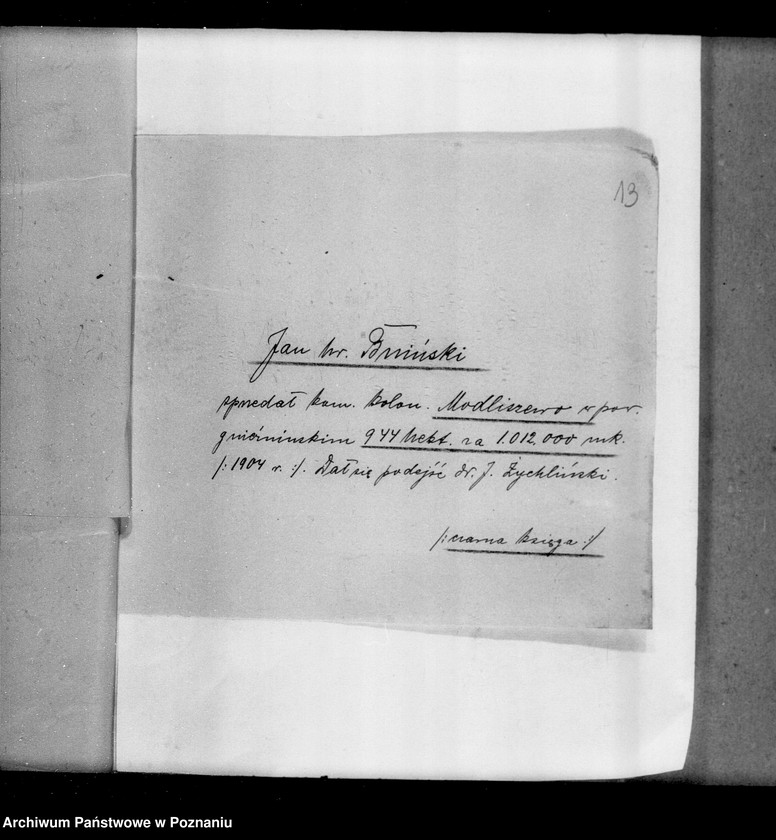 13
Jan hr. Bniński
sprzedał kom. kolon. Modliszewo w pow.
gnieźnińskim 944 hekt. za 1.012.000 mk.
/: 1904 r. :/. Dał się podejść dr. J. Żychliński.
/: czarna księga :/
Archiwum Państwowe w Poznaniu